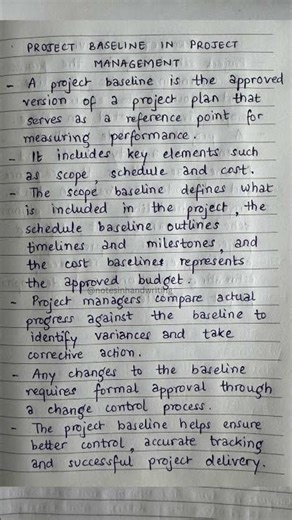 PROJECT BASELINE IN PROJECT
MANAGEMENT
- A project baseline is the approved
version of a project plan that
serves as a reference point for
measuring performance.
- It includes key elements such
as scope schedule and cost.
- The scope baseline defines what
is included in the project, the
schedule baseline outlines
timelines and milestones, and
the cost baselines represents
the approved budget.
@notesinhandwriting
- Project managers compare actual
progress against the baseline to
identify variances and take
corrective action.
- Any changes to the baseline
requires formal approval through
a change control process.
- The project baseline helps ensure
better control, accurate tracking
and successful project delivery.